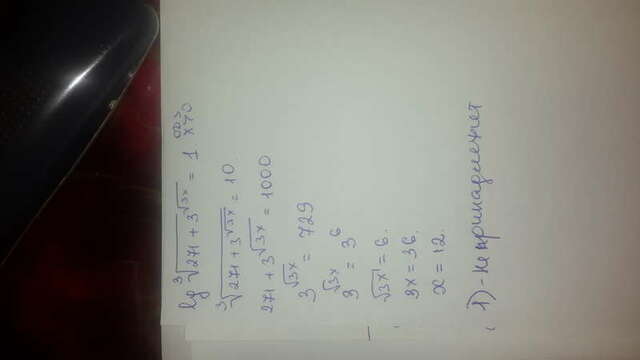 lg ∛(271 + 3^√(3x)) = 1 ОДЗ x>0
∛(271 + 3^√(3x)) = 10
271 + 3^√(3x) = 1000
3^√(3x) = 729
3^√(3x) = 3^6
√(3x) = 6.
3x = 36.
x = 12.
1) - не принадлежит